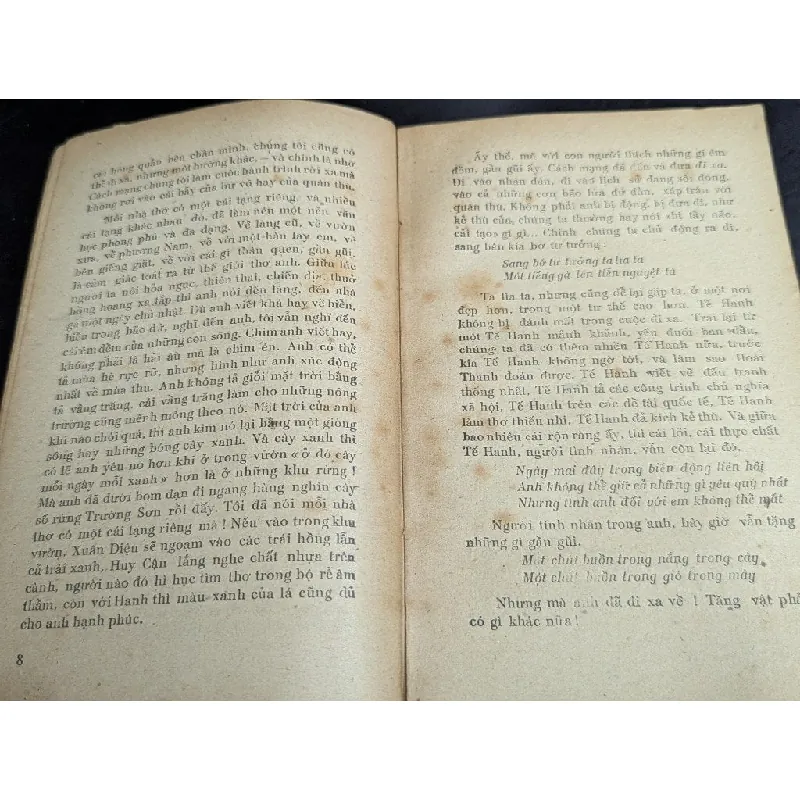 hồng quân bên chân mình, chúng tôi cũng có
thể đi xa, nhưng một hướng khác, — và chính là nhờ
Cách mạng chúng tôi làm cuộc hành trình rời xa mà
không rơi vào cái bẫy của hư vô hay của quân thù.
Mỗi nhà thơ có một cái tạng riêng, và nhiều
cái tạng khác nhau đó, đã làm nên một nền văn
học phong phú và đa dạng. Về làng cũ, về vườn
xưa, về phương Nam, về với một bàn tay em, và
bên giếng giặt, về với cái gì thân quen, gần gũi,
là cảm giác toát ra từ thế giới thơ anh. Giữa lúc
người ta nói hỏa ngọc, thiên thai, chiến địa, thuở
hồng hoang xa tắp thì anh nói đến làng, đến nhà
ga một ngày chủ nhật. Dù anh viết khá hay về biển,
biển trong bão dữ, nghĩ đến anh, tôi vẫn nghĩ đến
cái êm đềm của những con sông. Chim anh viết hay,
không phải là hải âu mà là chim én. Anh có thể
tả mùa hè rực rỡ, nhưng hình như anh xúc động
nhất về mùa thu. Anh không tả giỏi mặt trời bằng
tả vầng trăng, cái vầng trăng làm cho những nông
trường cũng mênh mông theo nó. Mặt trời của anh
khi nào chói quá, thì anh kìm nó lại bằng một giòng
sông hay những bóng cây xanh. Và cây xanh thì
có lẽ anh yêu nó hơn khi ở trong vườn « ở đó cây
mỗi ngày mỗi xanh » hơn là ở những khu rừng !
Mà anh đã dưới bom đạn đi ngang hàng nghìn cây
số rừng Trường Sơn rồi đấy. Tôi đã nói mỗi nhà
thơ có một cái tạng riêng mà ! Nếu vào trong khu
vườn, Xuân Diệu sẽ ngoạm vào các trái hồng lẫn
cả trái xanh, Huy Cận lắng nghe chất nhựa trên
cành, người nào đó hì hục tìm thơ trong bộ rễ âm
thầm, còn với Hanh thì màu xanh của lá cũng đủ
cho anh hạnh phúc.
8
Ấy thế, mà với con người thích những gì êm
đềm, gần gũi ấy. Cách mạng đã đến và đưa đi xa.
Đi vào nhân dân, đi vào lịch sử đang sôi động,
vào cả những cơn bão lửa dữ dằn, xáp trận với
quân thù. Không phải anh bị động, bị đưa đi, như
kẻ thù của chúng ta thường hay nói khi tẩy não,
cải tạo gì gì... Chính chúng ta chủ động ra đi,
sang bên kia bờ tư tưởng.
Sang bờ tư tưởng ta lìa ta
Một tiếng gà lên tiễn nguyệt tà
Ta lìa ta, nhưng cũng để lại gặp ta, ở một nơi
đẹp hơn, trong một tư thế cao hơn. Tế Hanh
không bị đánh mất trong cuộc đi xa. Trái lại từ
một Tế Hanh mảnh khảnh, yếu đuối ban đầu,
chúng ta đã có thêm nhiều Tế Hanh nữa, trước
kia Tế Hanh không ngờ tới, và làm sao Hoài
Thanh đoán được. Tế Hanh viết về đấu tranh
thống nhất, Tế Hanh tả các công trình chủ nghĩa
xã hội, Tế Hanh trên các đề tài quốc tế, Tế Hanh
làm thơ thiếu nhi, Tế Hanh đả kích kẻ thù. Và giữa
bao nhiêu cái rộn ràng ấy, thì cái lõi, cái thực chất
Tế Hanh, người tình nhân, vẫn còn lại đó.
Ngày mai dây trong biến động liên hồi
Anh không thể giữ cả những gì yêu quý nhất
Nhưng tình anh đối với em không thể mất
Người tình nhân trong anh, bây giờ vẫn tặng
những gì gần gũi.
Một chút buồn trong nắng trong cây
Một chút buồn trong gió trong mây
Nhưng mà anh đã đi xa về ! Tặng vật phải
có gì khác nữa !